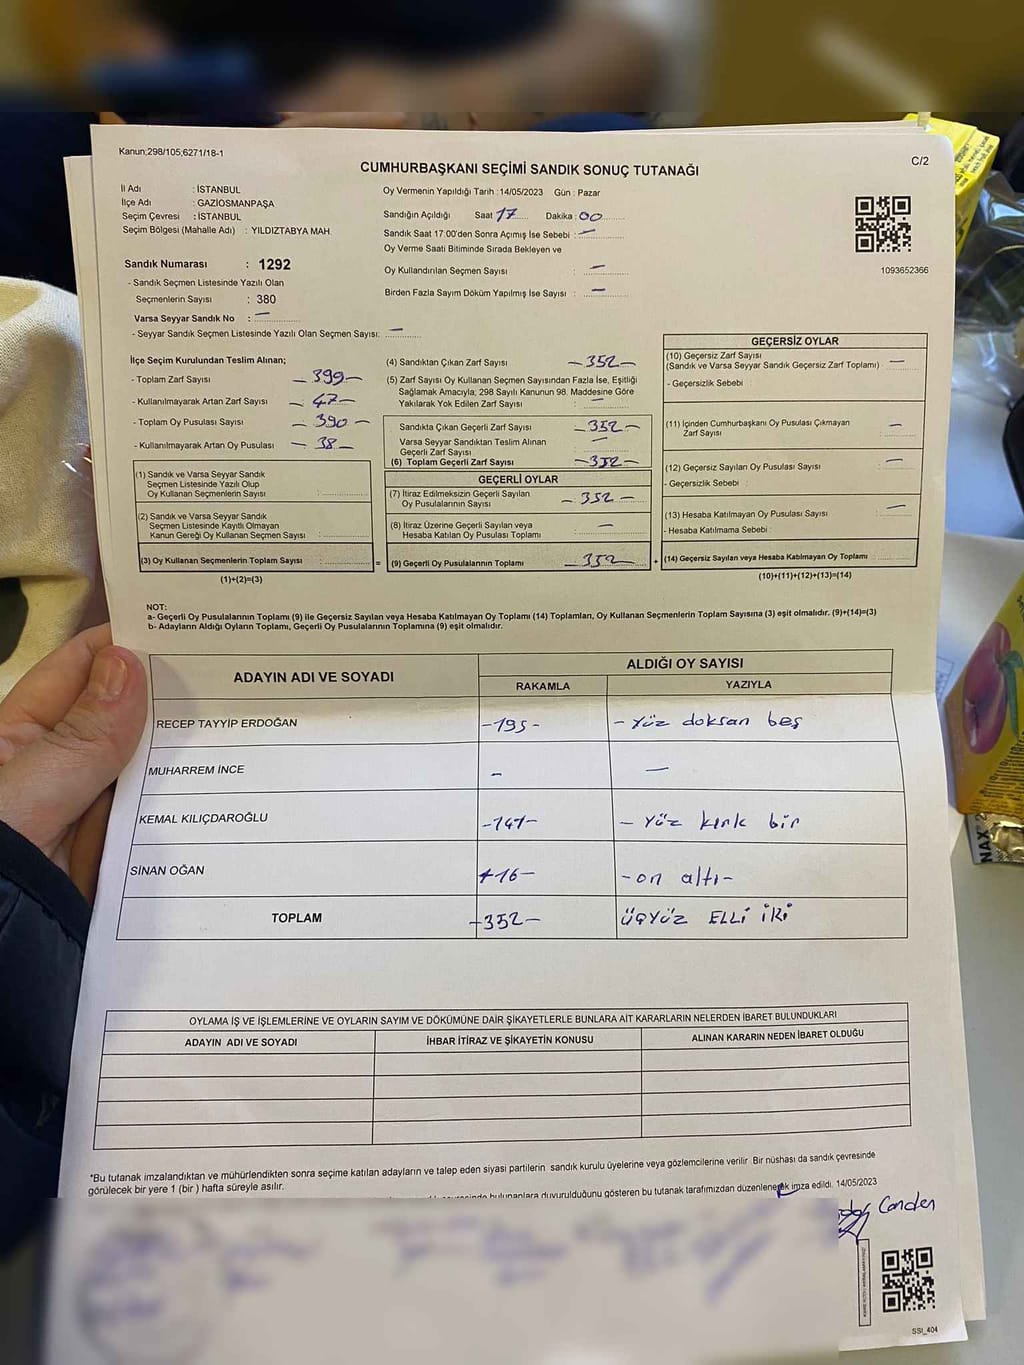 Kanun;298/105;6271/18-1
CUMHURBAŞKANI SEÇİMİ SANDIK SONUÇ TUTANAĞI
C/2
İl Adı : İSTANBUL
İlçe Adı : GAZİOSMANPAŞA
Seçim Çevresi : İSTANBUL
Seçim Bölgesi (Mahalle Adı) : YILDIZTABYA MAH.
Oy Vermenin Yapıldığı Tarih :14/05/2023 Gün : Pazar
Sandığın Açıldığı Saat 17 Dakika : 00
Sandık Saat 17:00'den Sonra Açımış İse Sebebi : —
Oy Verme Saati Bitiminde Sırada Bekleyen ve
Oy Kullandırılan Seçmen Sayısı : —
Birden Fazla Sayım Döküm Yapılmış İse Sayısı : —
1093652366
Sandık Numarası : 1292
- Sandık Seçmen Listesinde Yazılı Olan
Seçmenlerin Sayısı : 380
Varsa Seyyar Sandık No : —
- Seyyar Sandık Seçmen Listesinde Yazılı Olan Seçmen Sayısı: —
İlçe Seçim Kurulundan Teslim Alınan;
- Toplam Zarf Sayısı — 399 —
- Kullanılmayarak Artan Zarf Sayısı — 47 —
- Toplam Oy Pusulası Sayısı — 390 —
- Kullanılmayarak Artan Oy Pusulası — 38 —
(1) Sandık ve Varsa Seyyar Sandık
Seçmen Listesinde Yazılı Olup
Oy Kullanan Seçmenlerin Sayısı :
(2) Sandık ve Varsa Seyyar Sandık
Seçmen Listesinde Kayıtlı Olmayan
Kanun Gereği Oy Kullanan Seçmen Sayısı :
(3) Oy Kullanan Seçmenlerin Toplam Sayısı : =
(1)+(2)=(3)
(4) Sandıktan Çıkan Zarf Sayısı — 352 —
(5) Zarf Sayısı Oy Kullanan Seçmen Sayısından Fazla İse, Eşitliği
Sağlamak Amacıyla; 298 Sayılı Kanunun 98. Maddesine Göre
Yakılarak Yok Edilen Zarf Sayısı : —
Sandıkta Çıkan Geçerli Zarf Sayısı — 352 —
Varsa Seyyar Sandıktan Teslim Alınan
Geçerli Zarf Sayısı : —
(6) Toplam Geçerli Zarf Sayısı — 352 —
GEÇERLİ OYLAR
(7) İtiraz Edilmeksizin Geçerli Sayılan
Oy Pusulalarının Sayısı — 352 —
(8) İtiraz Üzerine Geçerli Sayılan veya
Hesaba Katılan Oy Pusulası Toplamı : —
(9) Geçerli Oy Pusulalarının Toplamı — 352 — +
GEÇERSİZ OYLAR
(10) Geçersiz Zarf Sayısı
(Sandık ve Varsa Seyyar Sandık Geçersiz Zarf Toplamı) : —
- Geçersizlik Sebebi :
(11) İçinden Cumhurbaşkanı Oy Pusulası Çıkmayan
Zarf Sayısı : —
(12) Geçersiz Sayılan Oy Pusulası Sayısı : —
- Geçersizlik Sebebi :
(13) Hesaba Katılmayan Oy Pusulası Sayısı : —
- Hesaba Katılmama Sebebi :
(14) Geçersiz Sayılan veya Hesaba Katılmayan Oy Toplamı :
(10)+(11)+(12)+(13)=(14)
NOT:
a- Geçerli Oy Pusulalarının Toplamı (9) ile Geçersiz Sayılan veya Hesaba Katılmayan Oy Toplamı (14) Toplamları, Oy Kullanan Seçmenlerin Toplam Sayısına (3) eşit olmalıdır. (9)+(14)=(3)
b- Adayların Aldığı Oyların Toplamı, Geçerli Oy Pusulalarının Toplamına (9) eşit olmalıdır.
ADAYIN ADI VE SOYADI ALDIĞI OY SAYISI
RAKAMLA YAZIYLA
RECEP TAYYİP ERDOĞAN -195- - Yüz doksan beş
MUHARREM İNCE - —
KEMAL KILIÇDAROĞLU -141- - Yüz kırk bir
SİNAN OĞAN +16- -on altı-
TOPLAM -352- ÜÇYÜZ ELLİ İKİ
OYLAMA İŞ VE İŞLEMLERİNE VE OYLARIN SAYIM VE DÖKÜMÜNE DAİR ŞİKAYETLERLE BUNLARA AİT KARARLARIN NELERDEN İBARET BULUNDUKLARI
ADAYIN ADI VE SOYADI İHBAR İTİRAZ VE ŞİKAYETİN KONUSU ALINAN KARARIN NEDEN İBARET OLDUĞU
*Bu tutanak imzalandıktan ve mühürlendikten sonra seçime katılan adayların ve talep eden siyasi partilerin sandık kurulu üyelerine veya gözlemcilerine verilir. Bir nüshası da sandık çevresinde
görülecek bir yere 1 (bir) hafta süreyle asılır.
bulunanlara duyurulduğunu gösteren bu tutanak tarafımızdan düzenlenerek imza edildi. 14/05/2023
Canden
SSI_404
NAX